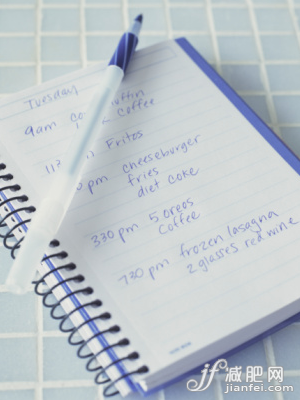 Tuesday
9am
Coffee
Fritos
pm cheeseburger
fries
diet coke
330 pm 5 oreos
coffee
730 pm frozen lasagna
2 glasses red wine
jf 减肥网
jianfei.com